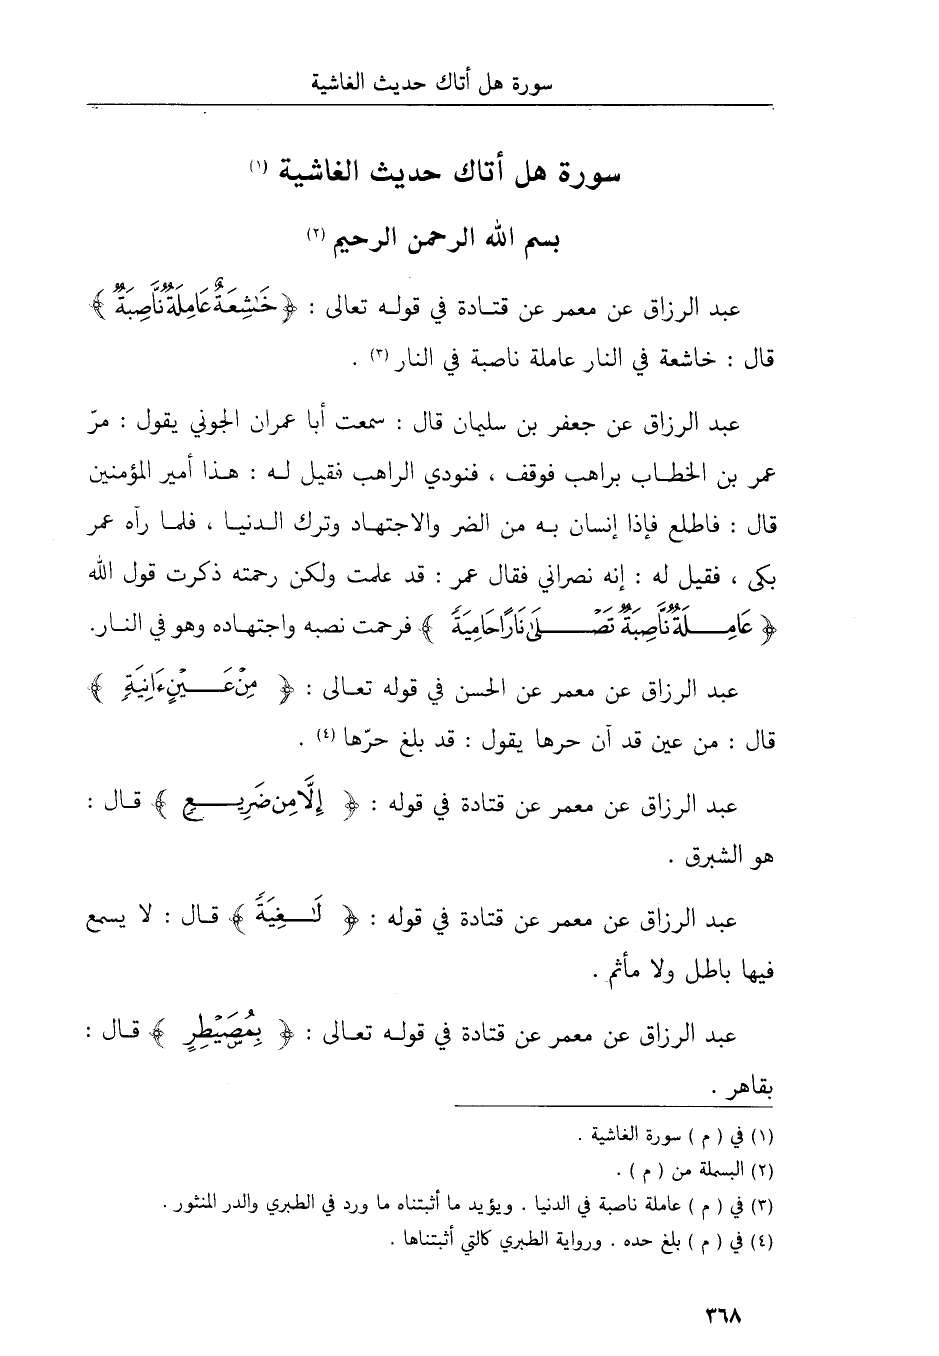 سورة هل أتاك حديث الغاشية
سورة هل أتاك حديث الغاشية (١)
بسم الله الرحمن الرحيم (٢)
عبد الرزاق عن معمر عن قتادة في قوله تعالى : ﴿ خَٰشِعَةٌ عَامِلَةٌ نَّاصِبَةٌ ﴾
قال : خاشعة في النار عاملة ناصبة في النار (٣) .
عبد الرزاق عن جعفر بن سليمان قال : سمعت أبا عمران الجوني يقول : مرّ
عمر بن الخطاب براهب فوقف ، فنودي الراهب فقيل له : هذا أمير المؤمنين
قال : فاطلع فإذا إنسان به من الضر والاجتهاد وترك الدنيا ، فلما رآه عمر
بكى ، فقيل له : إنه نصراني فقال عمر : قد علمت ولكن رحمته ذكرت قول الله
﴿ عَامِلَةٌ نَّاصِبَةٌ تَصْلَىٰ نَارًا حَامِيَةً ﴾ فرحمت نصبه واجتهاده وهو في النار.
عبد الرزاق عن معمر عن الحسن في قوله تعالى : ﴿ مِنْ عَيْنٍ ءَانِيَةٍ ﴾
قال : من عين قد آن حرها يقول : قد بلغ حرّها (٤) .
عبد الرزاق عن معمر عن قتادة في قوله : ﴿ إِلَّا مِن ضَرِيعٍ ﴾ قال :
هو الشبرق .
عبد الرزاق عن معمر عن قتادة في قوله : ﴿ لَٰغِيَةً ﴾ قال : لا يسمع
فيها باطل ولا مأثم .
عبد الرزاق عن معمر عن قتادة في قوله تعالى : ﴿ بِمُصَيْطِرٍ ﴾ قال :
بقاهر .
(١) في ( م ) سورة الغاشية .
(٢) البسملة من ( م ) .
(٣) في ( م ) عاملة ناصبة في الدنيا . ويؤيد ما أثبتناه ما ورد في الطبري والدر المنثور .
(٤) في ( م ) بلغ حده . ورواية الطبري كالتي أثبتناها .
٣٦٨